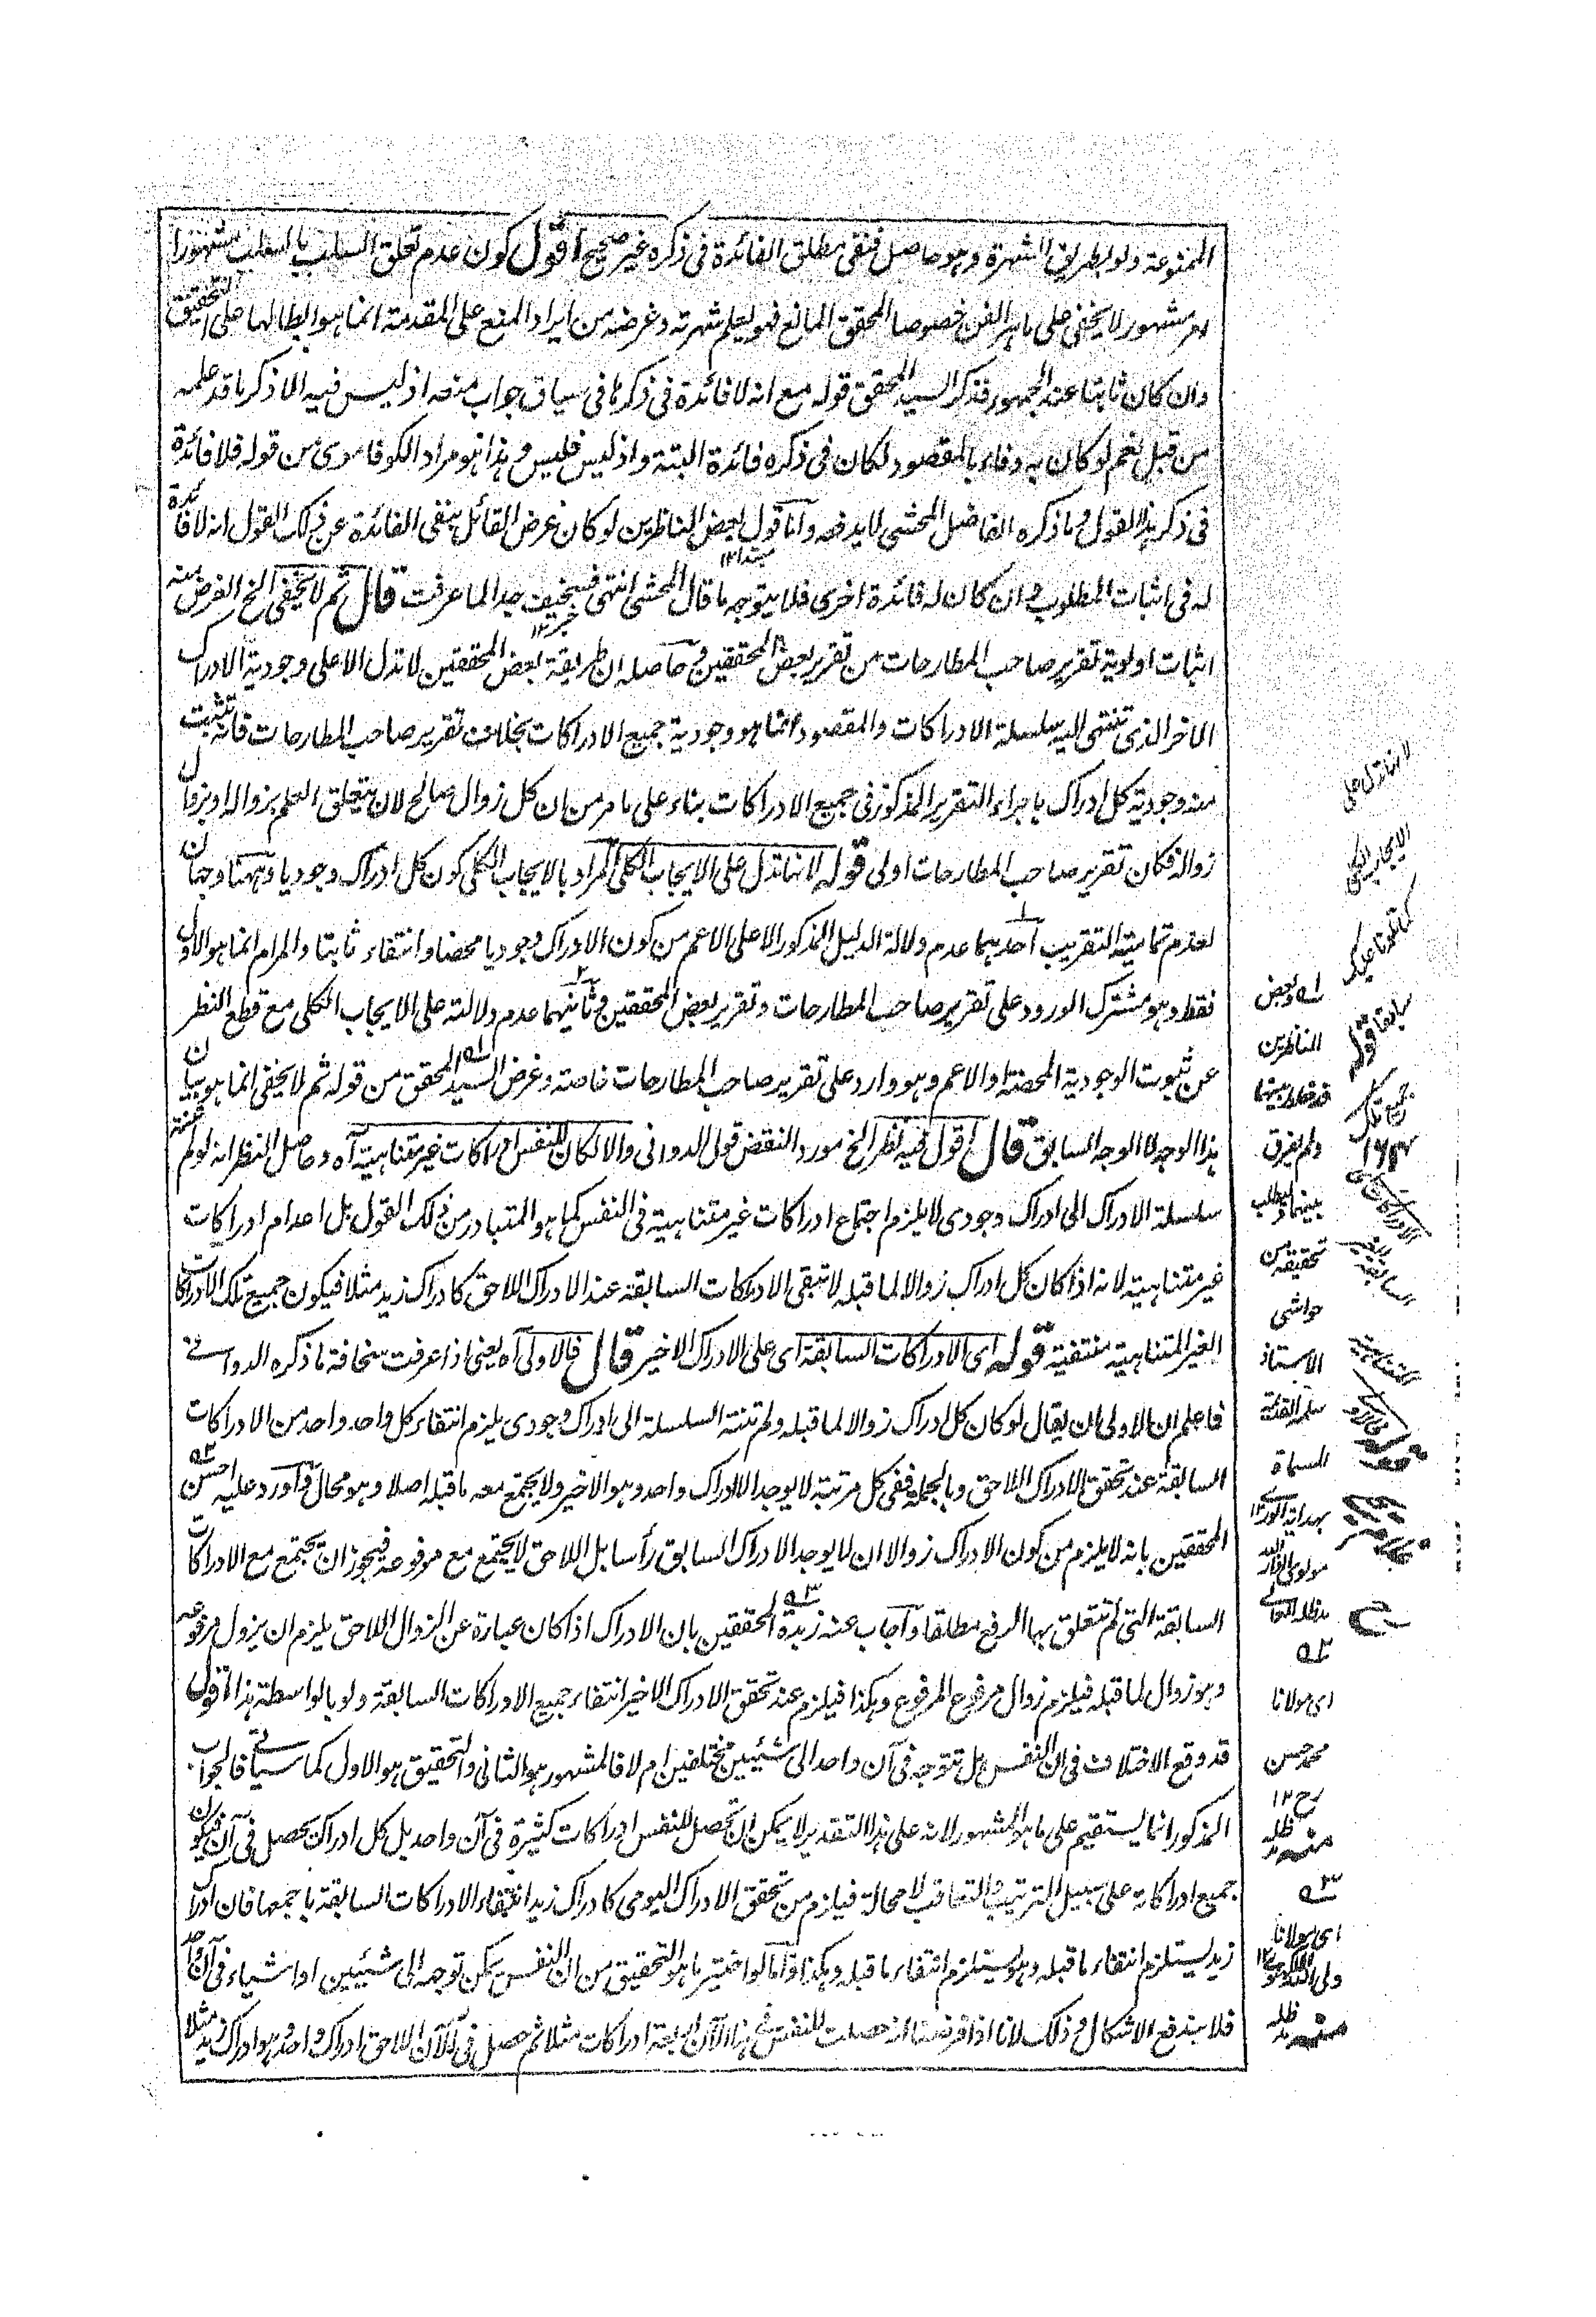 الممنوعة ولو بطريق الشهرة وهو حاصل فنفى مطلق الفائدة فى ذكره غير صحيح اقول كون عدم تعلق السلب بالسلب مشهورا
امر مشهور لا يخفى على ماهر الفن خصوصا المحقق المانع فهو يعلم شهرته وغرضه من ايراد المنع على المقدمة انما هو ابطالها على التحقيق
وان كان ثابتا عند الجمهور فذكر السيد المحقق قوله مع انه لا فائدة فى ذكرها فى سياق جواب منعه اذ ليس فيه الا ذكر ما قد علمه
من قبل نعم لو كان به وفاء بالمقصود لكان فى ذكره فائدة البتة واذ ليس فليس وهذا هو مراد الكوفاموى من قوله فلا فائدة
فى ذكر هذا القول وما ذكره الفاضل المحشى لا يدفعه وأما قول بعض الناظرين لو كان غرض القائل بنفى الفائدة عن ذلك القول انه لا فائدة
له فى اثبات المطلوب وان كان له فائدة اخرى فلا يتوجه ما قال المحشى انتهى فسخيف جدا لما عرفت قال ثم لا يخفى الخ الغرض منه
اثبات اولوية تقرير صاحب المطارحات من تقرير بعض المحققين وحاصله ان طريقة بعض المحققين لا تدل الا على وجودية الادراك
الاخر الذى تنتهى اليه سلسلة الادراكات والمقصود انما هو وجودية جميع الادراكات بخلاف تقرير صاحب المطارحات فانه تثبت
منه وجودية كل ادراك باجراء التقرير المذكور فى جميع الادراكات بناء على ما مر من ان كل زوال صالح لان يتعلق العلم بزواله او بزوال
زواله فكان تقرير صاحب المطارحات اولى قوله لانها تدل على الايجاب الكلى المراد بالايجاب الكلى كون كل ادراك وجوديا وههنا وجهان
لعدم تمامية التقريب أحدهما عدم دلالة الدليل المذكور الا على الاعم من كون الادراك وجوديا محضا وانتفاء ثابتا والمرام انما هو الاول
فقط وهو مشترك الورود على تقرير صاحب المطارحات وتقرير بعض المحققين وثانيهما عدم دلالته على الايجاب الكلى مع قطع النظر
عن ثبوت الوجودية المحضة او الاعم وهو وارد على تقرير صاحب المطارحات خاصة وغرض السيد المحقق من قوله ثم لا يخفى انما هو بيان
هذا الوجه لا الوجه السابق قال اقول فيه نظر الخ مورد النقض قول الدوانى والا لكان للنفس ادراكات غير متناهية آه وحاصل النظر انه لو لم تنته
سلسلة الادراك الى ادراك وجودى لا يلزم اجتماع ادراكات غير متناهية فى النفس كما هو المتبادر من ذلك القول بل اعدام ادراكات
غير متناهية لانه اذا كان كل ادراك زوالا لما قبله لا تبقى الادراكات السابقة عند الادراك اللاحق كادراك زيد مثلا فيكون جميع تلك الادراكات
الغير المتناهية منتفية قوله اى الادراكات السابقة اى على الادراك الاخير قال فالاولى آه يعنى اذا عرفت سخافة ما ذكره الدوانى
فاعلم ان الاولى ان يقال لو كان كل ادراك زوالا لما قبله ولم تنته السلسلة الى ادراك وجودى يلزم انتفاء كل واحد واحد من الادراكات
السابقة عند تحقق الادراك اللاحق وبالجملة ففى كل مرتبة لا يوجد الا ادراك واحد وهو الاخير ولا يجتمع معه ما قبله اصلا وهو محال وأورد عليه احسن
المحققين بانه لا يلزم من كون الادراك زوالا ان لا يوجد الادراك السابق رأسا بل اللاحق لا يجتمع مع مرفوعه فيجوز ان يجتمع مع الادراكات
السابقة التى لم تتعلق بها الرفع مطلقا وأجاب عنه زبدة المحققين بان الادراك اذا كان عبارة عن الزوال اللاحق يلزم ان يزول مرفوعه
وهو زوال لما قبله فيلزم زوال مرفوع المرفوع وهكذا فيلزم عند تحقق الادراك الاخير انتفاء جميع الادراكات السابقة ولو بالواسطة هذا اقول
قد وقع الاختلاف فى ان النفس هل تتوجه فى آن واحد الى شيئين مختلفين ام لا فالمشهور هو الثانى والتحقيق هو الاول كما سيأتى فالجواب
المذكور انما يستقيم على ما هو المشهور لانه على هذا التقدير لا يمكن ان تحصل للنفس ادراكات كثيرة فى آن واحد بل كل ادراك يحصل فى آن فيكون
جميع ادراكاته على سبيل الترتيب والتعاقب لا محالة فيلزم من تحقق الادراك اليومى كادراك زيد انتفاء الادراكات السابقة باجمعها فان ادراك
زيد يستلزم انتفاء ما قبله وهو يستلزم انتفاء ما قبله وهكذا وأما لو اختير ما هو التحقيق من ان النفس يمكن توجهه الى شيئين او اشياء فى آن واحد
فلا يندفع الاشكال وذلك لانا اذا فرضنا انه حصلت للنفس فى هذا الآن اربعة ادراكات مثلا ثم حصل فى الآن اللاحق ادراك واحد وهو ادراك زيد مثلا
لانها تدل على
الايجاب الكلى
سابقا قوله
جميع تلك
الادراكات
السابقة
المتناهية
له وبعض
الناظرين
قد خلط بينهما
ولم يفرق
بينهما
تحقيقه من
حواشى
الاستاذ
المسماة
اى مولانا
محمد حسن
رح ١٢
منه مد ظله
اى مولانا
ولى الله
منه مد ظله